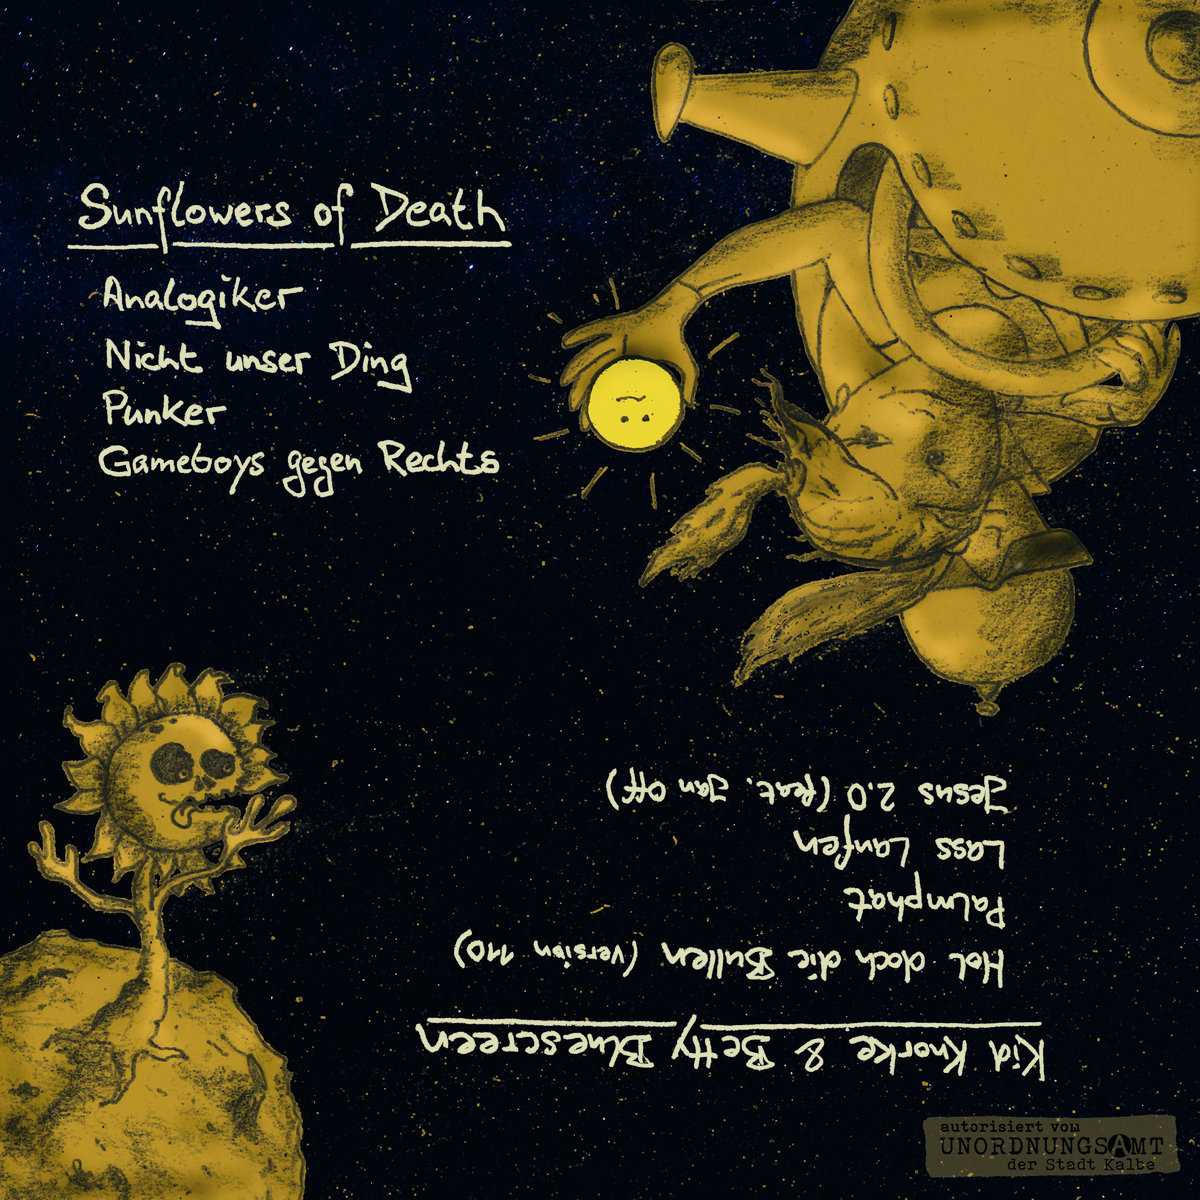 Sunflowers of Death
Analogiker
Nicht unser Ding
Punker
Gameboys gegen Rechts
Kid Knorke & Betty Bluescreen
Hol doch die Bullen (version 110)
Palmphat
Lass Laufen
Jesus 2.0 (feat. Jan Off)
autorisiert vom
UNORDNUNGSAMT
der Stadt Kalbe